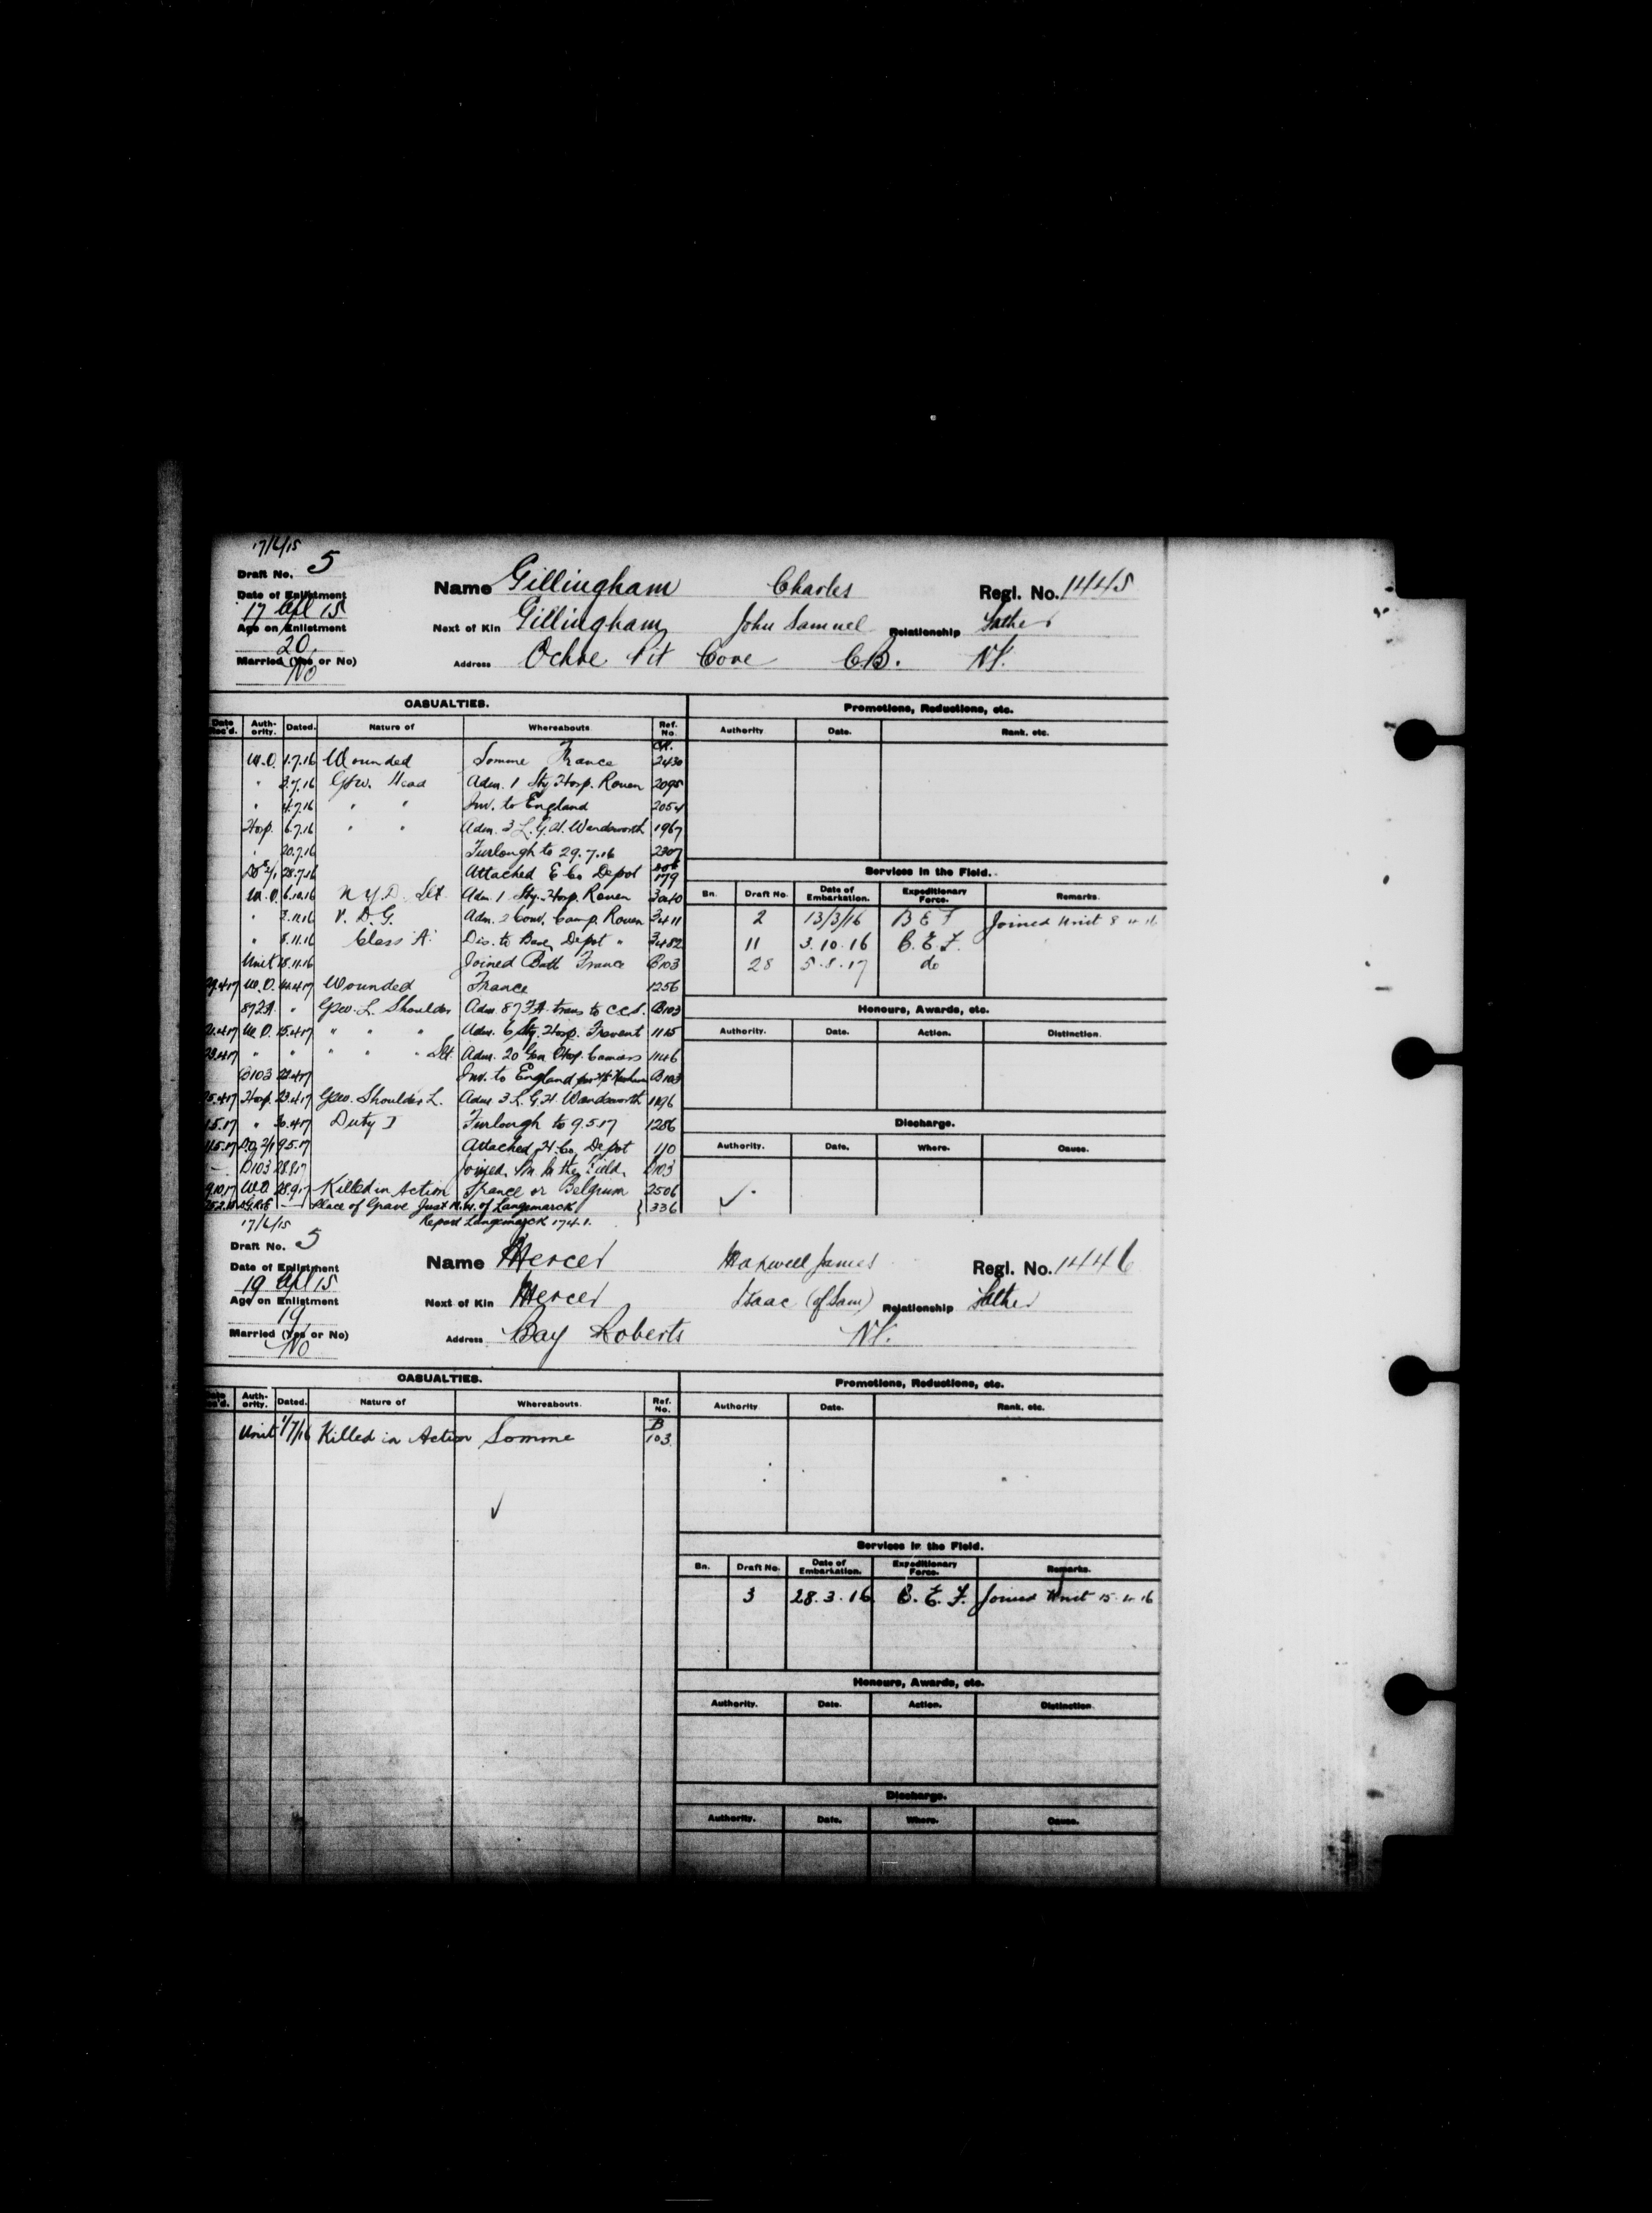 17/6/15
Draft No. 5
Date of Enlistment
17 Apl 15
Age on Enlistment
20
Married (Yes or No)
No
Name Gillingham Charles Regl. No. 1445
Next of Kin Gillingham John Samuel Relationship Father
Address Ochre Pit Cove C.B. Nf.
CASUALTIES.
Date Rec'd. Auth-ority. Dated. Nature of Whereabouts Ref. No.
W.O. 1.7.16 Wounded Somme France 2430
" 3.7.16 GSW. Head Adm. 1 Sty Hosp. Rouen 2095
" 4.7.16 " " Inv. to England 2054
Hosp. 6.7.16 " " Adm. 3 L.G.H. Wandsworth 1967
" 20.7.16 Furlough to 29.7.16 2307
28.7.16 Attached E Co Depot 179
W.O. 6.10.16 N.Y.D. Slt. Adm. 1 Sty. Hosp. Rouen 3040
" 3.11.16 V.D.G. Adm. 2 Conv. Camp. Rouen 3411
" 8.11.16 Class "A" Dis. to Base Depot " 3482
Unit 18.11.16 Joined Batt France B103
W.O. 14.4.17 Wounded France 1256
87 F.A. " GSW. L. Shoulder Adm. 87 F.A. trans to C.C.S. B103
21.4.17 W.O. 15.4.17 " " " Adm. 6 Sty. Hosp. Frevent 1115
23.4.17 " " " " " Slt. Adm. 20 Gen Hosp. Camiers 1146
B103 22.4.17 Inv. to England B103
25.4.17 Hosp. 23.4.17 GSW. Shoulder L. Adm. 3 L.G.H. Wandsworth 1196
1.5.17 " 30.4.17 Duty I Furlough to 9.5.17 1286
11.5.17 D.O. 2/1 9.5.17 Attached H. Co. Depot 110
B103 28.8.17 Joined Bn In the Field. B103
9.10.17 W.O. 28.9.17 Killed in Action France or Belgium 2506
Place of Grave Just N.W. of Langemarck 336
Report Langemarck 174.1.
Promotions, Reductions, etc.
Authority Date. Rank. etc.
Services in the Field.
Bn. Draft No. Date of Embarkation. Expeditionary Force. Remarks.
2 13/3/16 B E F Joined Unit 8 4 16
11 3.10.16 B.E.F.
28 5.8.17 do
Honours, Awards, etc.
Authority. Date. Action. Distinction.
Discharge.
Authority. Date. Where. Cause.
17/6/15
Draft No. 5
Date of Enlistment
19 Apl 15
Age on Enlistment
19
Married (Yes or No)
No
Name Mercer Maxwell James Regl. No. 1446
Next of Kin Mercer Isaac (of Sam) Relationship Father
Address Bay Roberts Nf.
CASUALTIES.
Date Rec'd. Auth-ority. Dated. Nature of Whereabouts. Ref. No.
Unit 1/7/16 Killed in Action Somme B 103
Promotions, Reductions, etc.
Authority Date. Rank. etc.
Services in the Field.
Bn. Draft No. Date of Embarkation. Expeditionary Force. Remarks.
3 28.3.16 B.E.F. Joined Unit 15.4.16
Honours, Awards, etc.
Authority. Date. Action. Distinction.
Discharge.
Authority. Date. Where. Cause.